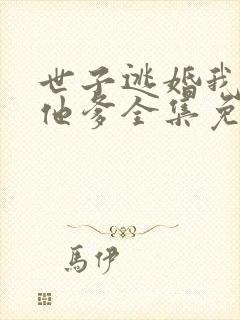 世子逃婚我
他爹全集免
馬伊